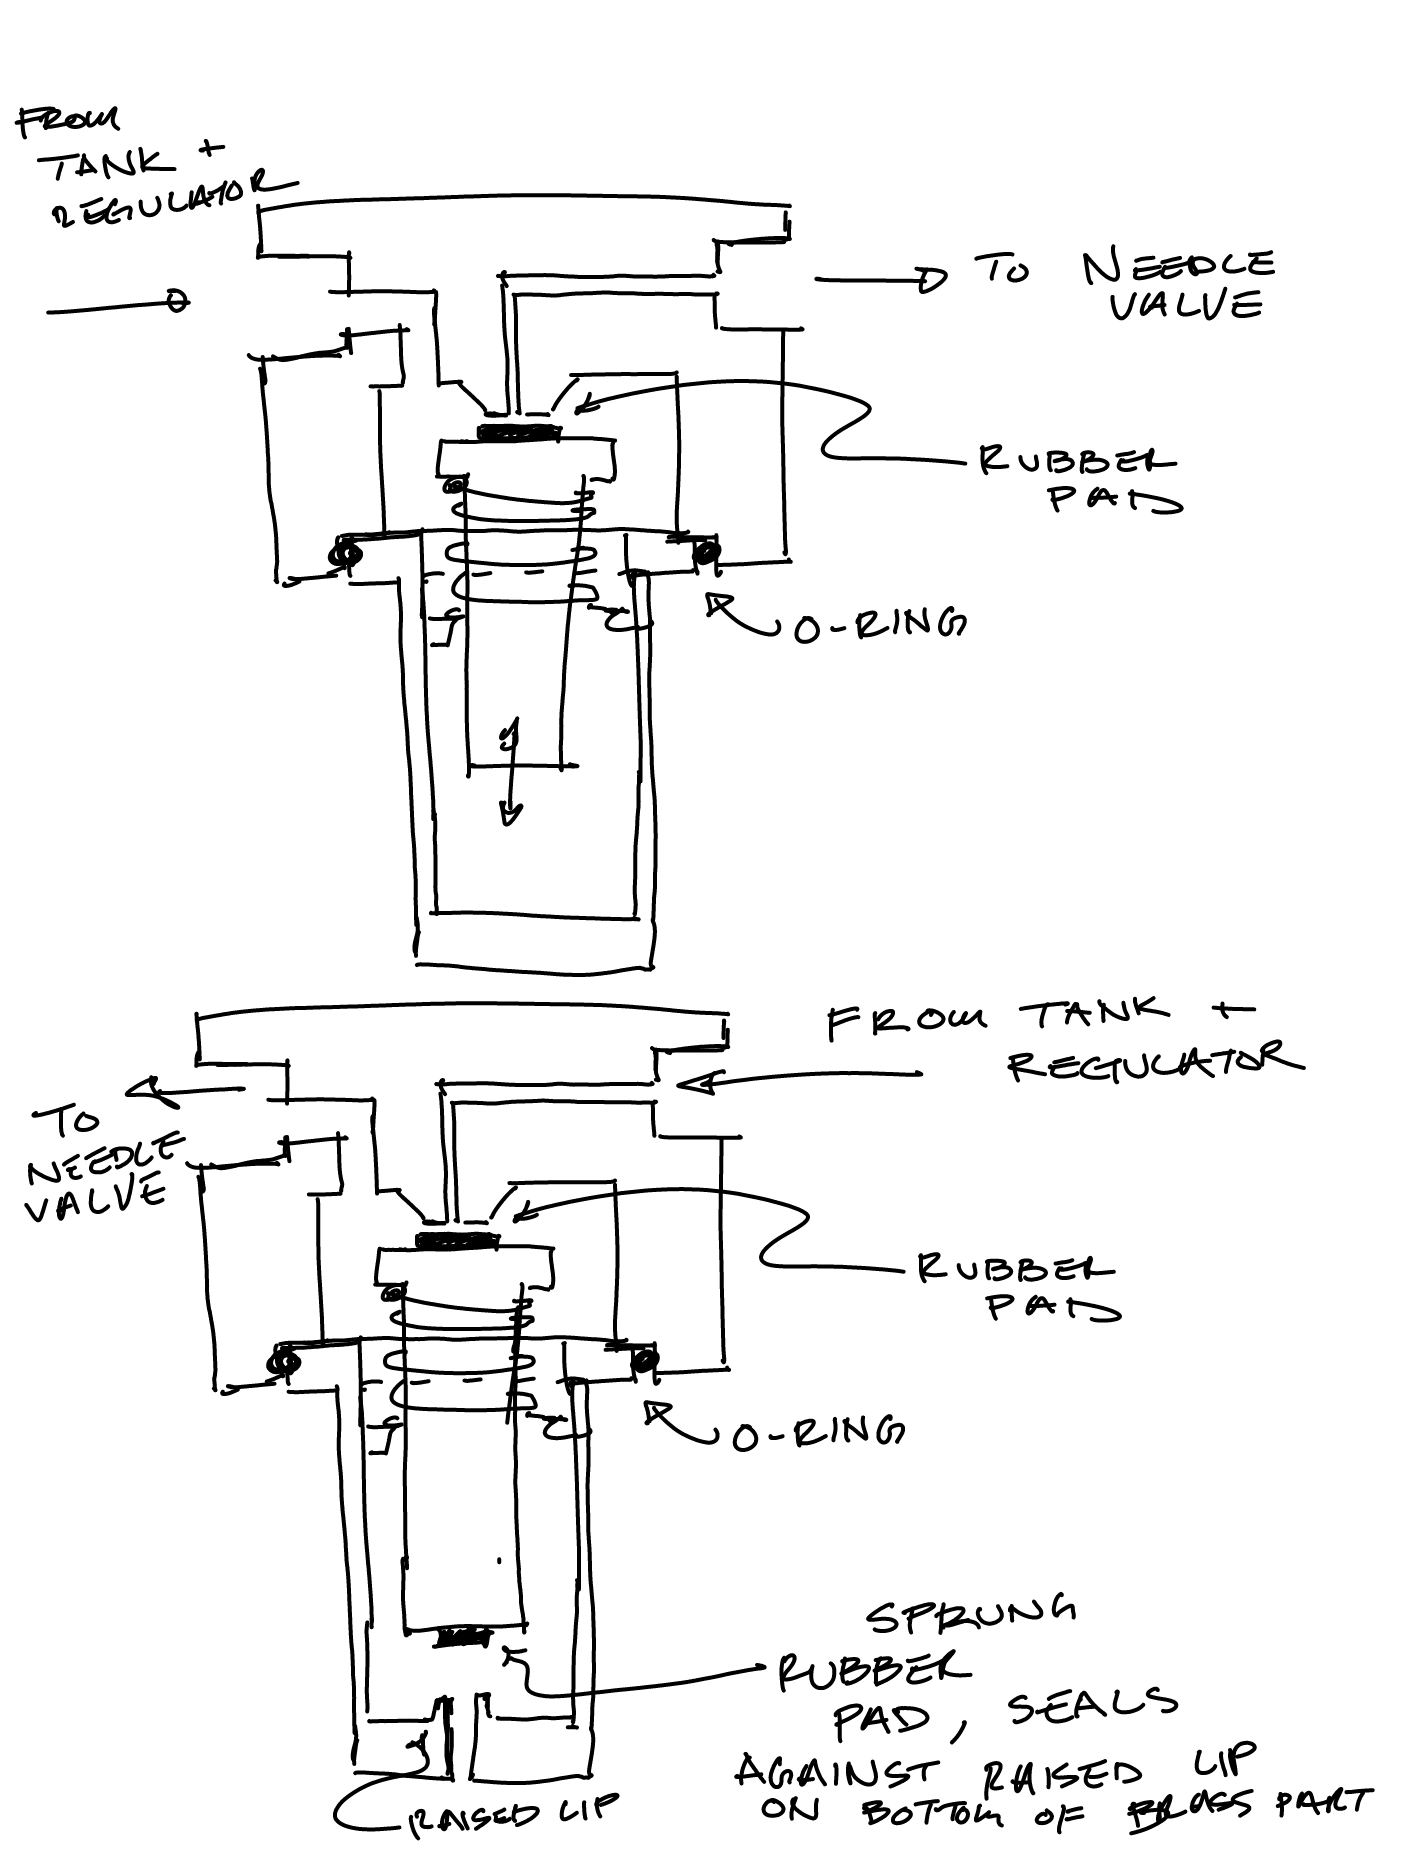 FROM
TANK +
REGULATOR
TO NEEDLE
VALVE
RUBBER
PAD
O-RING
FROM TANK +
REGULATOR
TO
NEEDLE
VALVE
RUBBER
PAD
O-RING
SPRUNG
RUBBER
PAD, SEALS
AGAINST RAISED LIP
ON BOTTOM OF BRASS PART
RAISED LIP